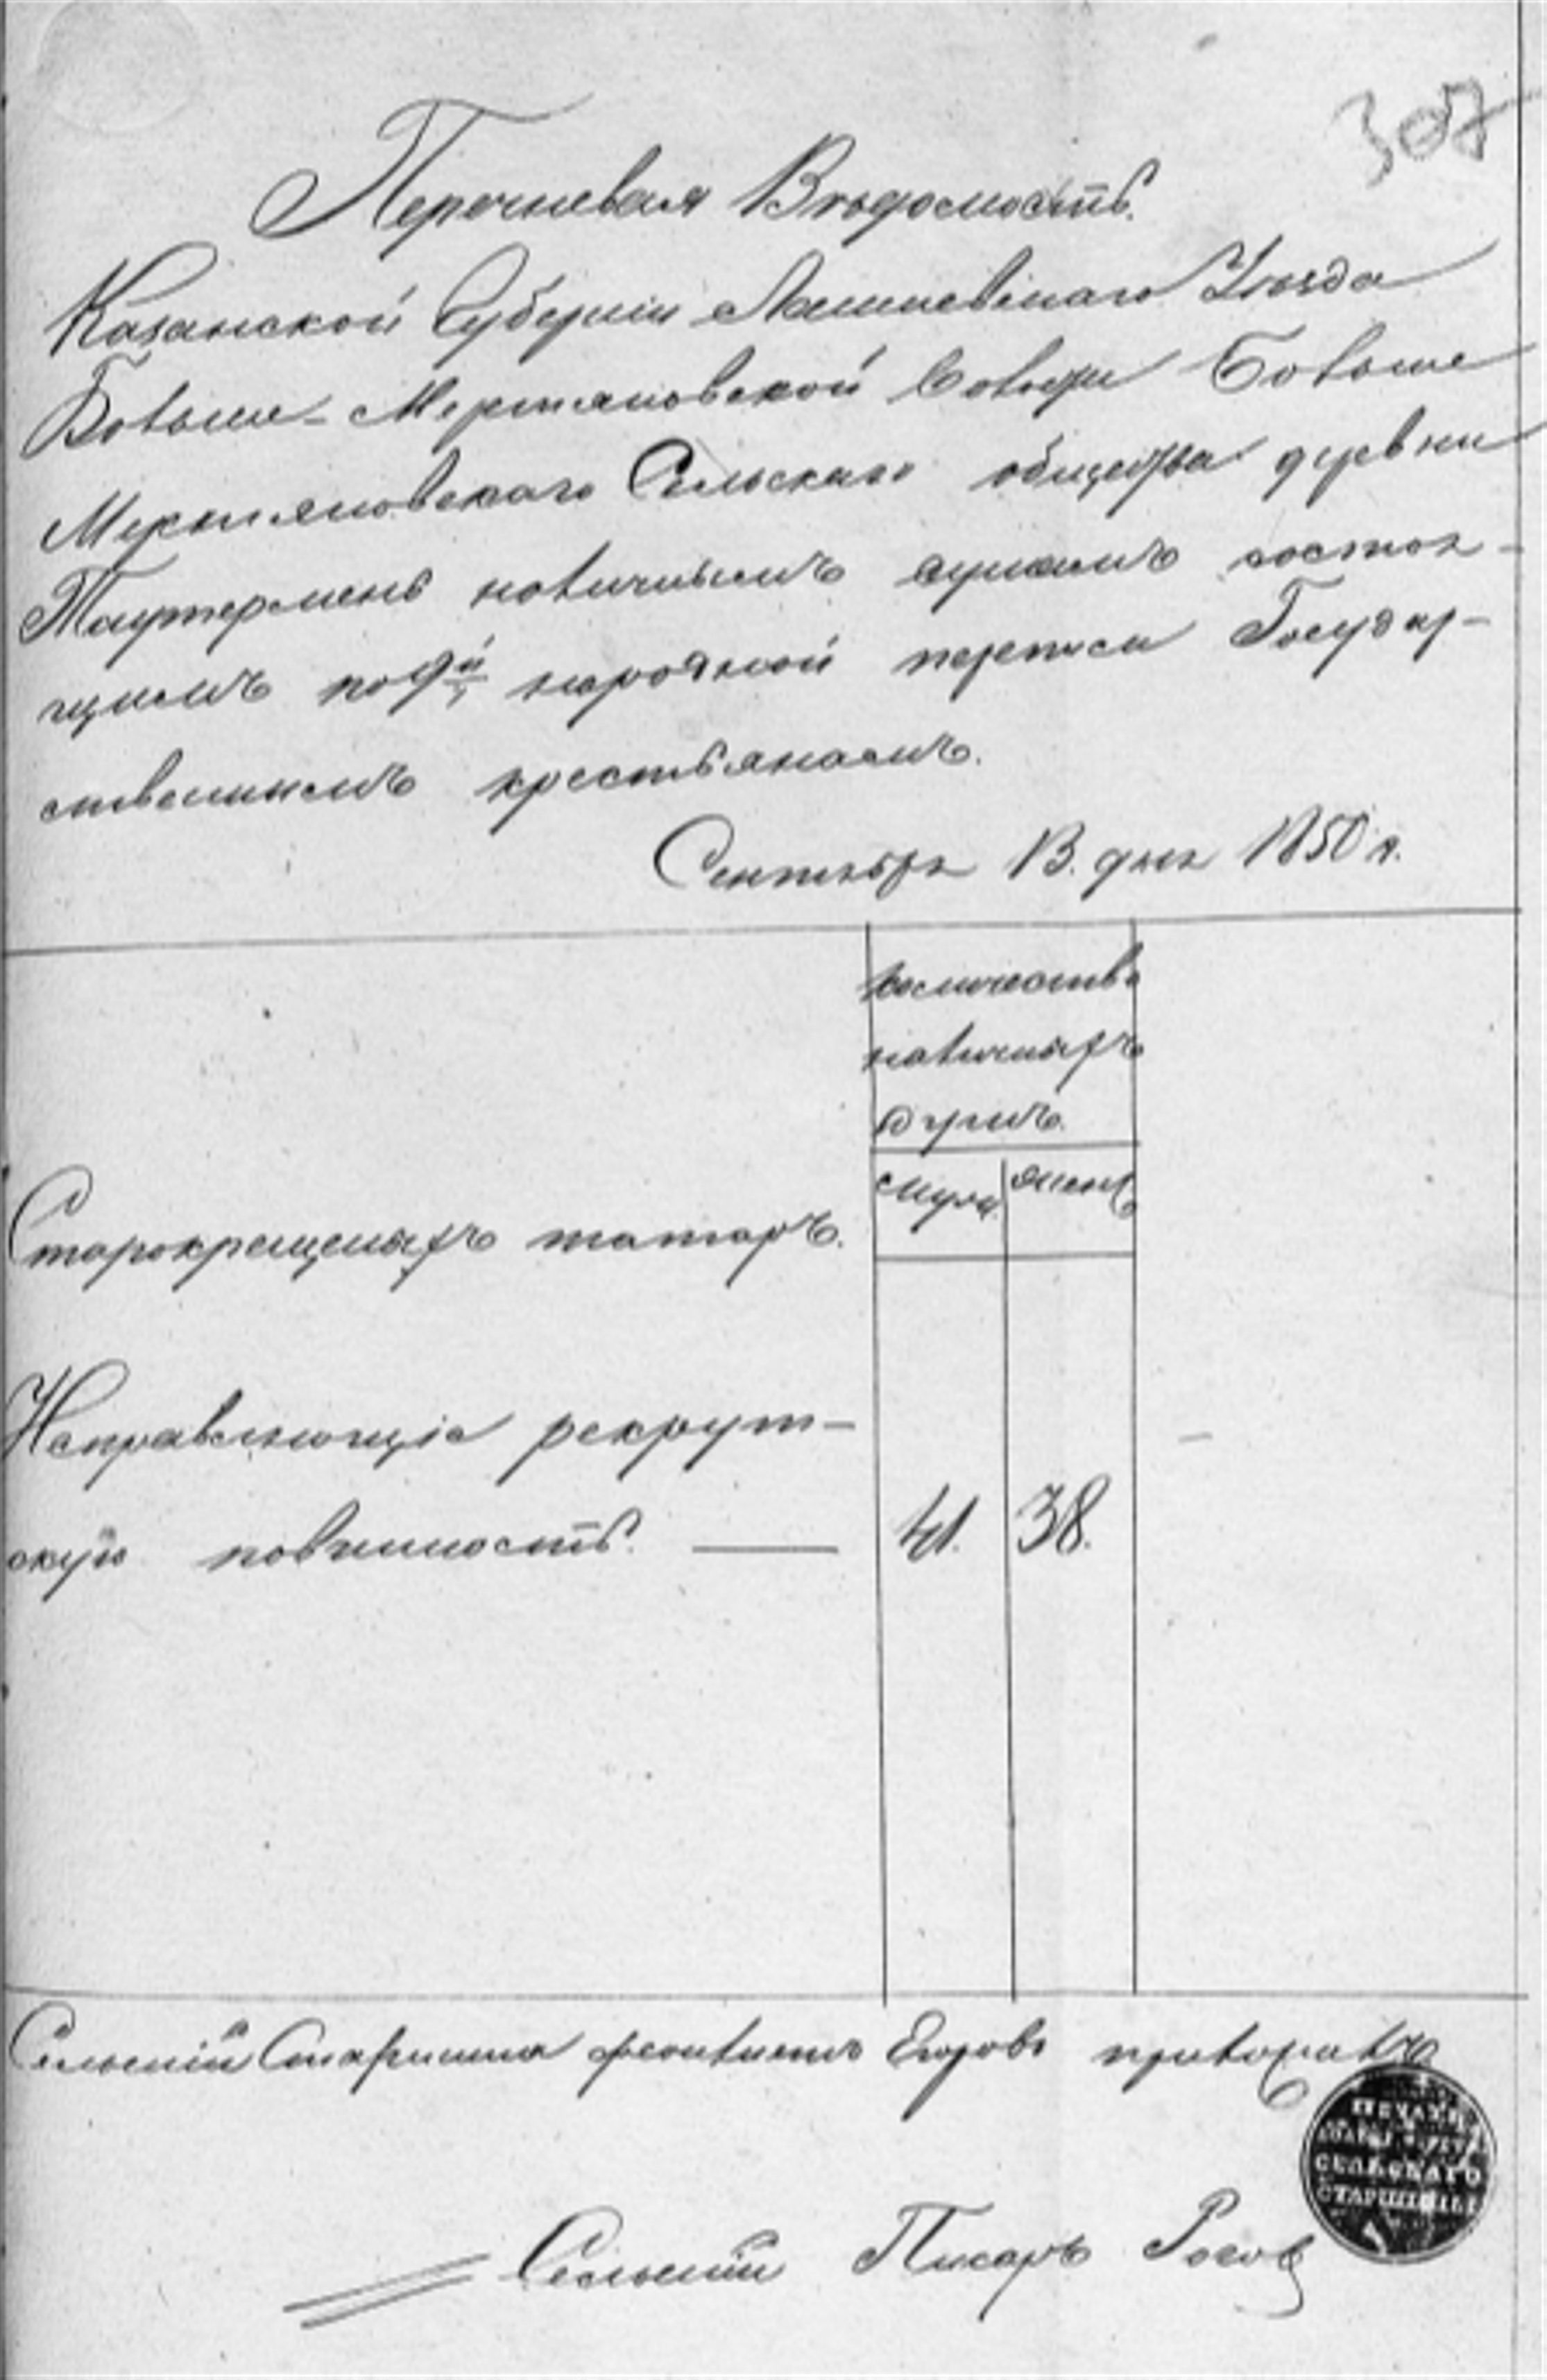 307
Перечневая Вѣдомость.
Казанской Губерніи Лаишевскаго Уѣзда
Больше-Меретяковской Волости Больше
Меретяковскаго Сельскаго общества деревни
Таутермень наличнымъ душамъ состоя-
щимъ по 9й народной переписи Государ-
ственнымъ крестьянамъ.
Сентября 13. дня 1850 г.
количество
наличныхъ
душъ.
муж. женс
Старокрещеныхъ татаръ.
Исправляющіе рекрут-
скую повинность. — 41. 38.
Сельскій Старшина Феоктистъ Егоровъ приложилъ
ПЕЧАТЬ
СЕЛЬСКАГО
СТАРШИНЫ
Сельскій Писарь Росов